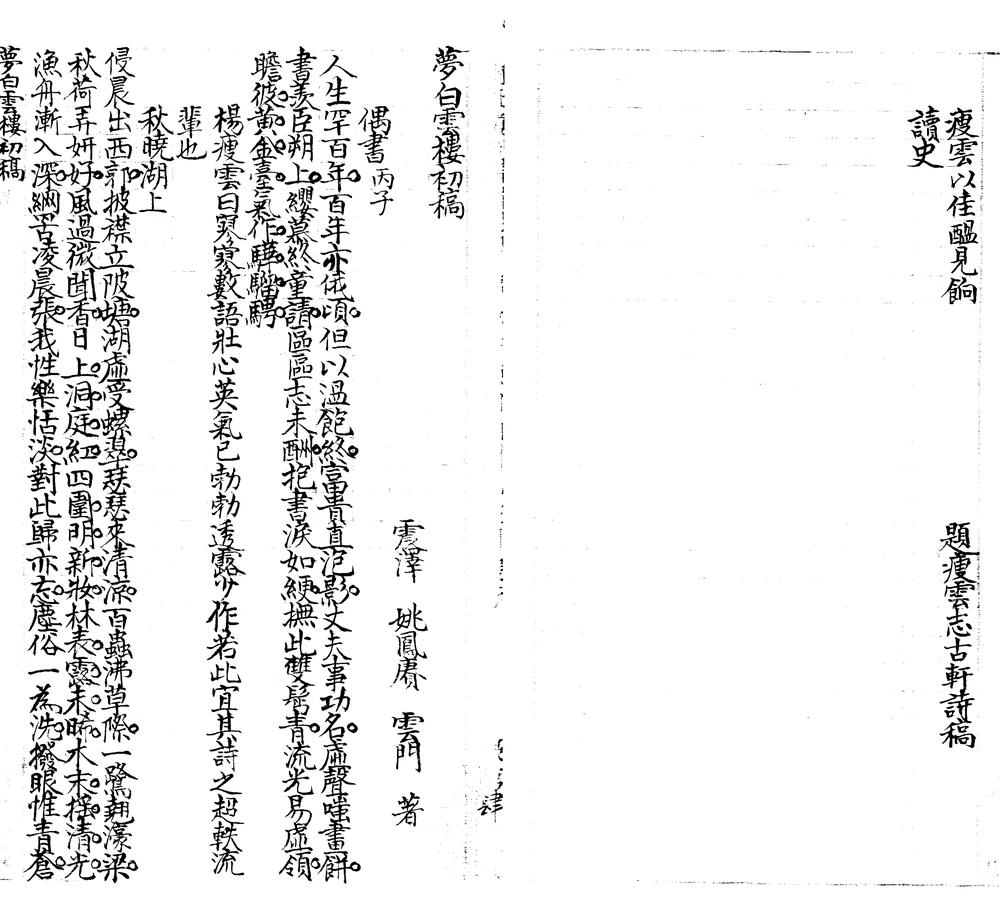 瘦雲以佳醞見餉
題瘦雲志古軒詩稿
讀史
夢白雲樓初稿
震澤 姚鳳賡 雲門 著
偶書 丙子
人生罕百年。百年亦俄頃。但以溫飽終。富貴直泡影。丈夫事功名。虛聲嗤畫餅。
書羨臣朔上。纓慕終童請。區區志未酬。抱書淚如綆。撫此雙鬢青。流光易虛領。
瞻彼黃金臺。氣作驊騮騁。
楊瘦雲曰寥寥數語壯心英氣已勃勃透露少作若此宜其詩之超軼流
輩也
秋曉湖上
侵晨出西郭。披襟立陂塘。湖虛受螺翠。瑟瑟來清涼。百蟲沸草際。一鷺翹濠梁。
秋荷弄妍好。風過微聞香。日上洞庭紅。四圍明新妝。林表露未晞。木末搖清光。
漁舟漸入深。網罟凌晨張。我性樂恬淡。對此歸亦忘。塵俗一為洗。撥眼惟青蒼。
夢白雲樓初稿